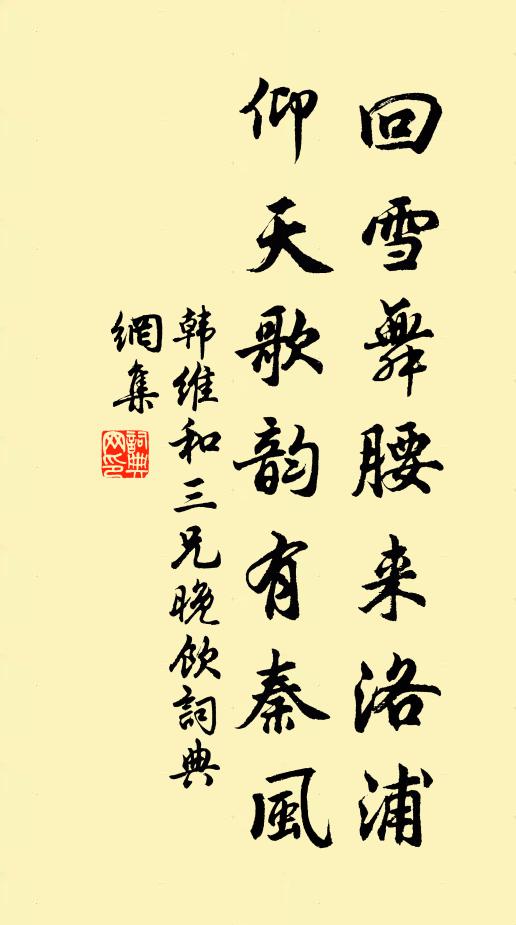 回雪舞腰来洛浦
仰天歌韵有秦風
韩維和三兄晚飲詞典
網集
詞典網印